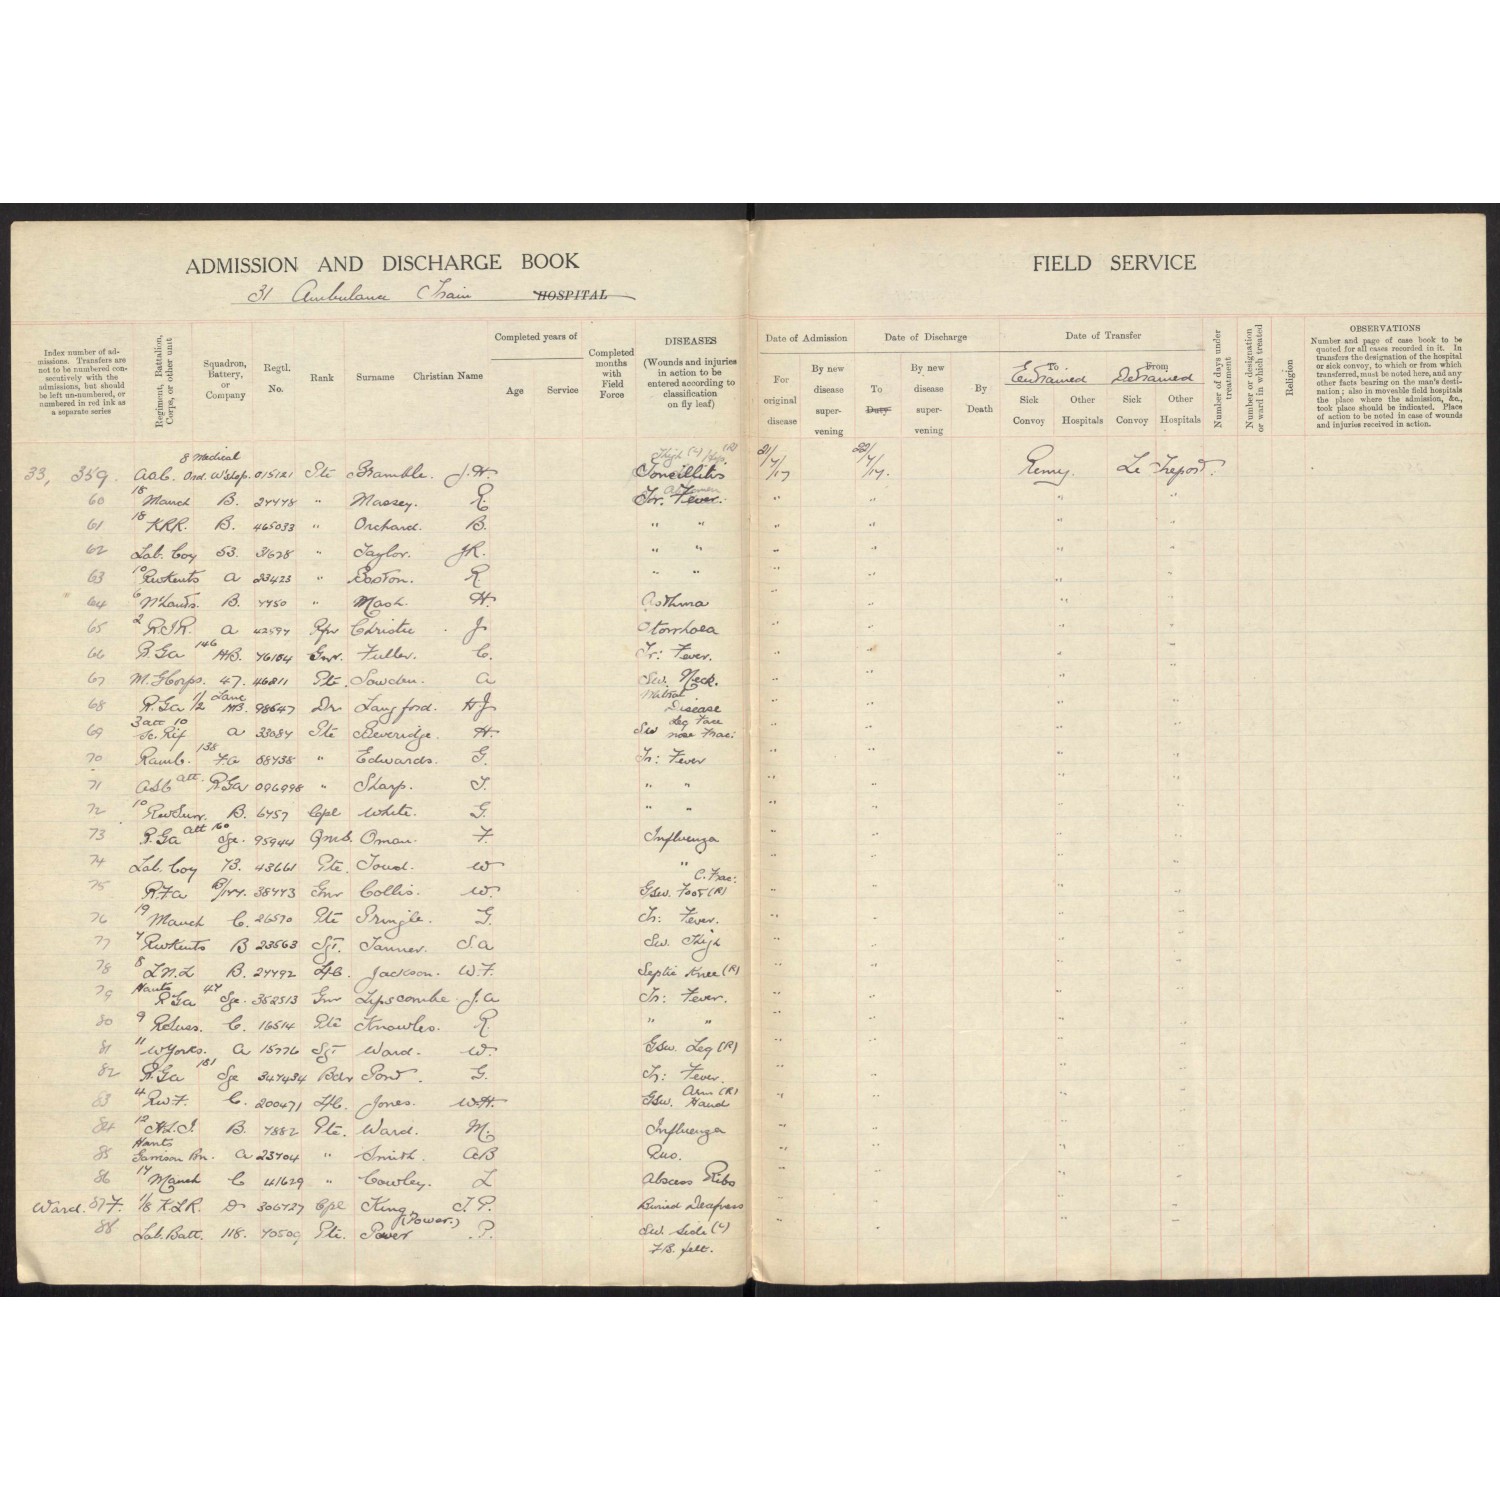 ADMISSION AND DISCHARGE BOOK
FIELD SERVICE
31 Ambulance Train HOSPITAL
Index number of admissions. Transfers are not to be numbered consecutively with the admissions, but should be left un-numbered, or numbered in red ink as a separate series
Regiment, Battalion, Corps, or other unit
Squadron, Battery, or Company
Regtl. No.
Rank
Surname
Christian Name
Completed years of
Age
Service
Completed months with Field Force
DISEASES
(Wounds and injuries in action to be entered according to classification on fly leaf)
Date of Admission
For original disease
By new disease supervening
Date of Discharge
To Duty
By new disease supervening
By Death
Date of Transfer
To
Entrained
Sick Convoy
Other Hospitals
From
Detrained
Sick Convoy
Other Hospitals
Number of days under treatment
Number or designation or ward in which treated
Religion
OBSERVATIONS
Number and page of case book to be quoted for all cases recorded in it. In transfers the designation of the hospital or sick convoy, to which or from which transferred, must be noted here, and any other facts bearing on the man's destination; also in moveable field hospitals the place where the admission, &c., took place should be indicated. Place of action to be noted in case of wounds and injuries received in action.
33, 359. 8 Medical Ord. W'shop. 015121 Pte Bramble. J.H. Toncillitis 21/7/17 22/7/17. Remy. Le Treport.
60 18 Manch B. 27778 " Massey. R. Tr. Fever. " " " "
61 18 KRR. B. 465033 " Orchard. B. " " " " " "
62 Lab. Coy 53. 31678 " Taylor. J.R. " " " " " "
63 10 RwKents A 23423 " Boston. R " " " " " "
64 6 N'Lants. B. 7750 " Mash. H. Asthma " " " "
65 2 R.I.R. A 42597 Rfn Christie J. Otorrhoea " " " "
66 R.Ga 146 H.B. 76104 Gnr. Fuller. C. Tr: Fever. " " " "
67 M.G Corps. 47. 46811 Pte. Sowden. A Sw. Neck. " " " "
68 R.Ga 1/2 Lanc H.B. 98647 Dr Langford. H J Mitral Disease " " " "
69 3 att 10 Sc. Rif A 33087 Pte Beveridge. H. Sw Leg Face nose Frac: " " " "
70 Ramc. 138 Fa 88738 " Edwards. G. Tr: Fever " " " "
71 ASC att. RGa 096998 " Sharp. T. " " " " " "
72 10 RwSurr. B. 6757 Cpl White. G. " " " " " "
73 R.Ga att 160 Sge. 95944 QmS. Oman. F. Influenza " " " "
74 Lab. Coy 73. 43661 Pte. Toud. W " " " " "
75 R.Fa 38773 Gnr Collis. W. Gsw. Foot (R) C. Frac: " " " "
76 19 Manch C. 26570 Pte Pringle. G. Tr: Fever. " " " "
77 7 RwKents B 23563 Sgt. Tanner. S.A Sw. Thigh " " " "
78 8 L.N.L B. 27792 L/C. Jackson. W.F. Septic Knee (R) " " " "
79 Hants R.Ga 47 Sge. 352513 Gnr Lipscombe. J.A Tr: Fever. " " " "
80 9 RSuss. C. 16514 Pte Knowles. R " " " " " "
81 11 W Yorks. A 15776 Sgt Ward. W. Gsw. Leg (R) " " " "
82 R.Ga 181 Sge 347434 Bdr Pont. G. Tr: Fever. " " " "
83 4 RwF. C. 200471 L/C. Jones. W.H. Gsw. Arm (R) Hand " " " "
84 12 H.L.I. B. 7882 Pte. Ward. M. Influenza " " " "
85 Hants Garrison Bn. A 23704 " Smith. A B Duo. " " " "
86 17 Manch C 41629 " Cowley. L Abscess Ribs " " " "
Ward. 87 F. 1/8 K.L.R. D 306727 Cpl King T. P. Buried Deafness " " " "
88 Lab. Batt. 118. 70509 Pte. Power (Power.) P. Sw. Side (L) F.B. felt. " " " "